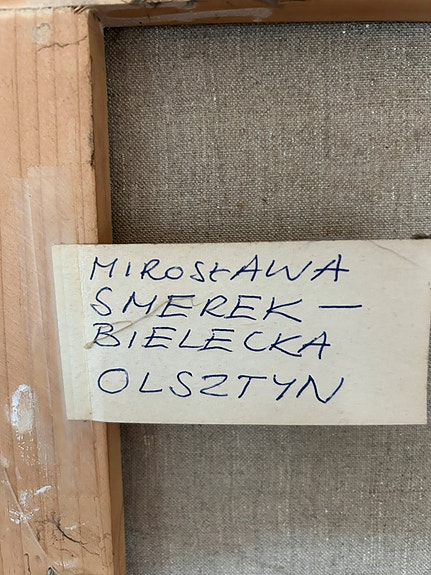 MIROSŁAWA
SMEREK –
BIELECKA
OLSZTYN